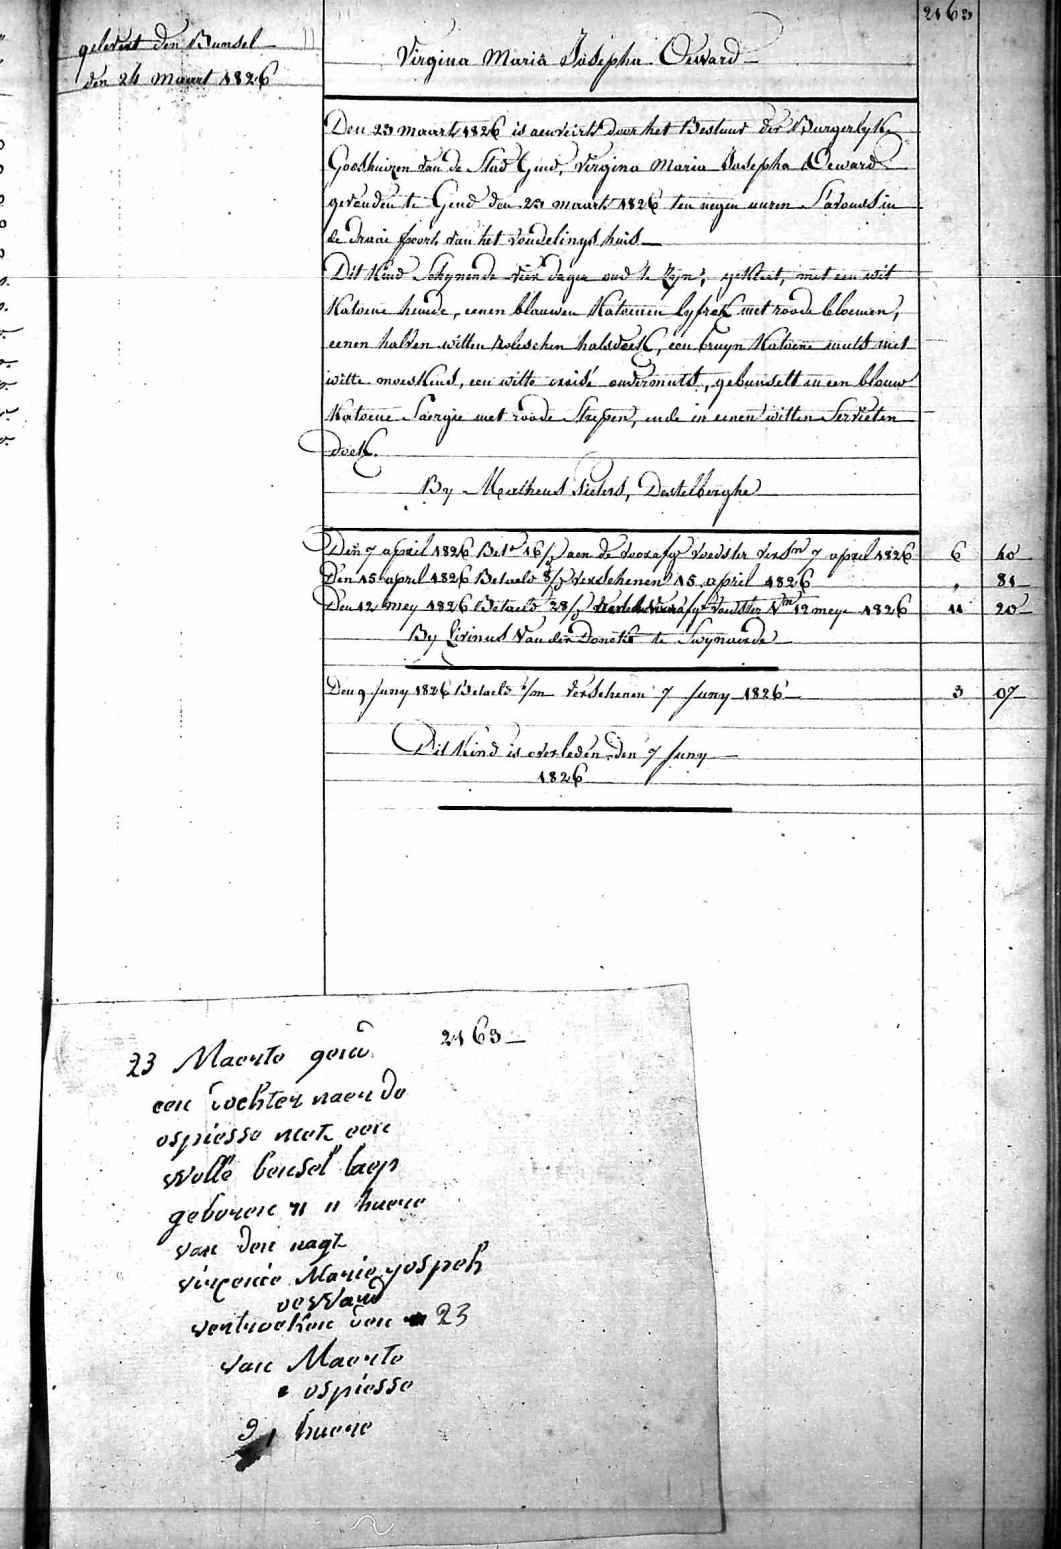 2163
gelevert den Bunsel
den 24 maart 1826
Virgina Maria Josepha Oeward
Den 23 maart 1826 is aenveirt door het Bestuur der Burgerlyke
Godshuizen van de Stad Gend, Virgina Maria Josepha Oeward
gevonden te Gend den 23 maart 1826 ten negen uuren s'avonds in
de draai poort van het vondelings huis
Dit Kind Schynende vier dagen oud te Zyn, gekleet, met een wit
Katoene hemde, eenen blauwen Katoenen lyfrok met roode bloemen,
eenen halven witten halsdoek, een bruyn Katoene muts met
witte moeskens, een witte croisé ondermuts, gebunselt in een blauw
Katoene Saergie met roode Strepen, ende in eenen witten Servieten
doek.
By Matheus Pieters, Destelberghe
Den 7 april 1826 Bet. 16/ aen de voorafg. voedster vers. 7 april 1826 6 40
Den 15 april 1826 Betaeld 8/ verschenen 15 april 1826 , 81
Den 12 mey 1826 Betaeld 28/ voorafg. voedster V. 12 meye 1826 11 20
By Livinus Van der Donckt te Swynaerde
Den 9 Juny 1826 Betaeld verschenen 7 Juny 1826 3 07
Dit Kind is overleden den 7 Juny
1826
2163
23 Maerte
een dochter naer do
ospiesse met een
wolle bensel laep
geboren 11 huere
van den nagt
Marie yospeh
oeward
vertrocken den 23
van Maerte
ospiesse
9 huere